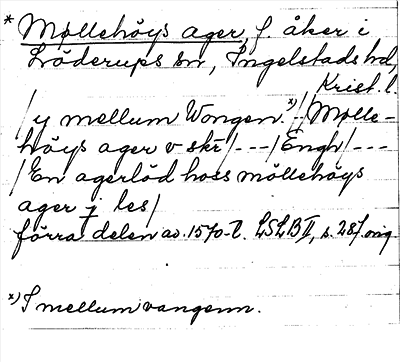 * Møllehöys ager, f. åker i
Löderups sn, Ingelstads hd,
Krist. l.
/y mellum Wongen. x)/Mølle-
höys ager v skr/---/Engh/---
/En agerlöd hoss möllehöys
ager j les/
förra delen av 1570-t. LSLB II, s. 287. orig.
x) I mellum vangenn.